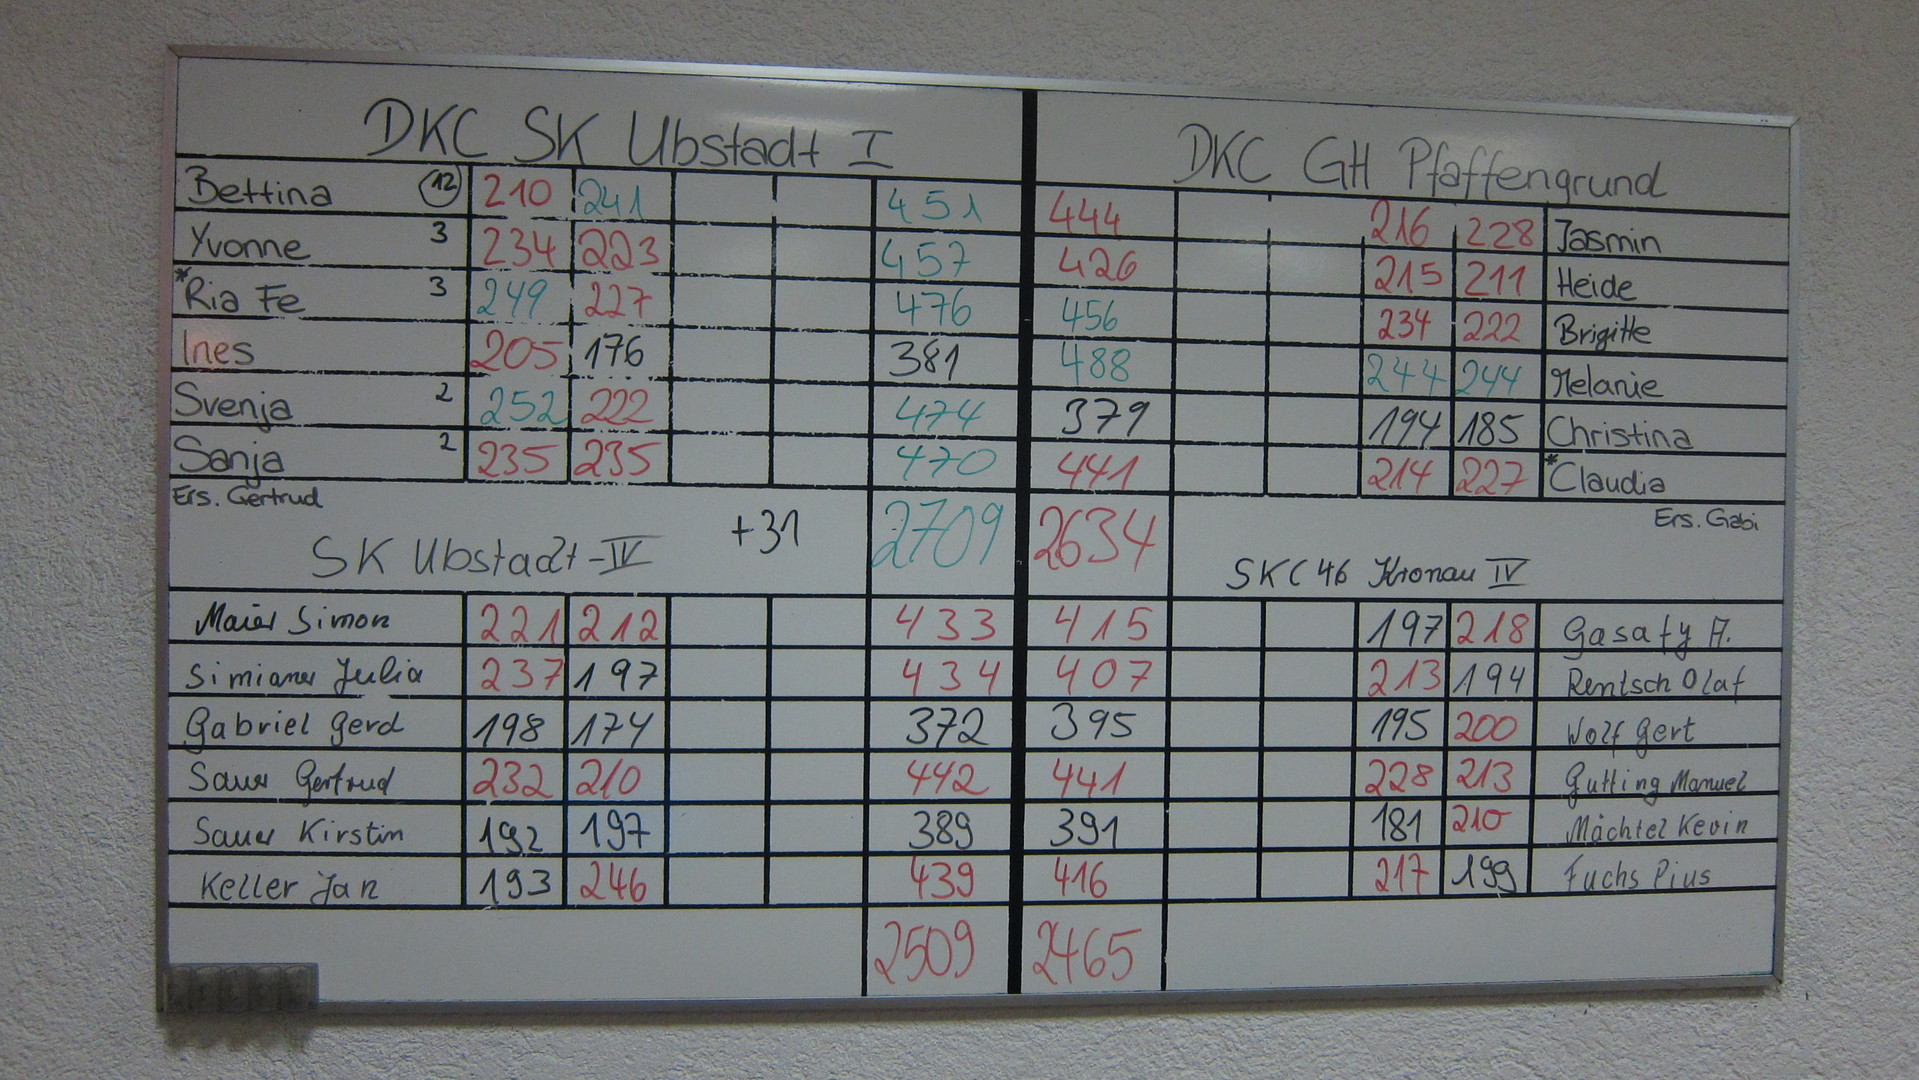 DKC SK Ubstadt I DKC GH Pfaffengrund
Bettina 12 210 241 451 444 216 228 Jasmin
Yvonne 3 234 223 457 426 215 211 Heide
*Ria Fe 3 249 227 476 456 234 222 Brigitte
Ines 205 176 381 488 244 244 Melanie
Svenja 2 252 222 474 379 194 185 Christina
Sanja 2 235 235 470 441 214 227 *Claudia
Ers. Gertrud +31 2709 2634 Ers. Gabi
SK Ubstadt-IV SKC 46 Kronau IV
Maier Simon 221 212 433 415 197 218 Gasafy A.
Simianer Julia 237 197 434 407 213 194 Rentsch Olaf
Gabriel Gerd 198 174 372 395 195 200 Wolf Gert
Sauer Gertrud 232 210 442 441 228 213 Gutting Manuel
Sauer Kirstin 192 197 389 391 181 210 Mächtel Kevin
Keller Jan 193 246 439 416 217 199 Fuchs Pius
2509 2465